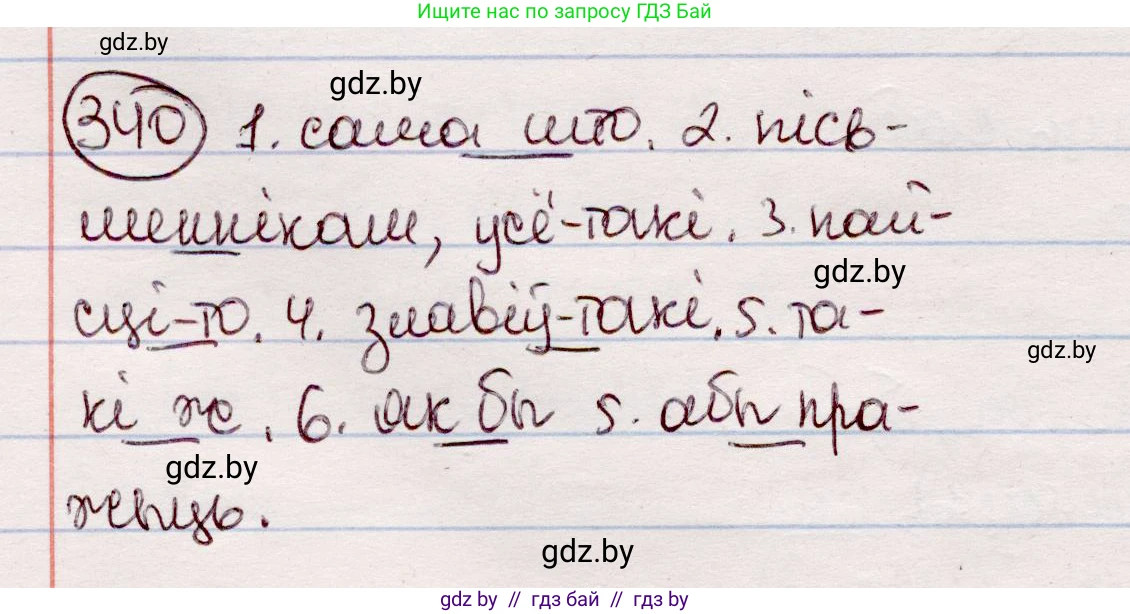 Ищите нас по запросу ГДЗ Бай
gdz.by
gdz.by
340 1. сама што. 2. пісь-
меннікам, усё-такі. 3. пай-
gdz.by
сці-то. 4. злавіў-такі. 5. та-
gdz.by
кі ж. 6. як бы 5. абы пра-
gdz.by
жыць.
gdz.by
gdz.by // гдз бай // гдз by